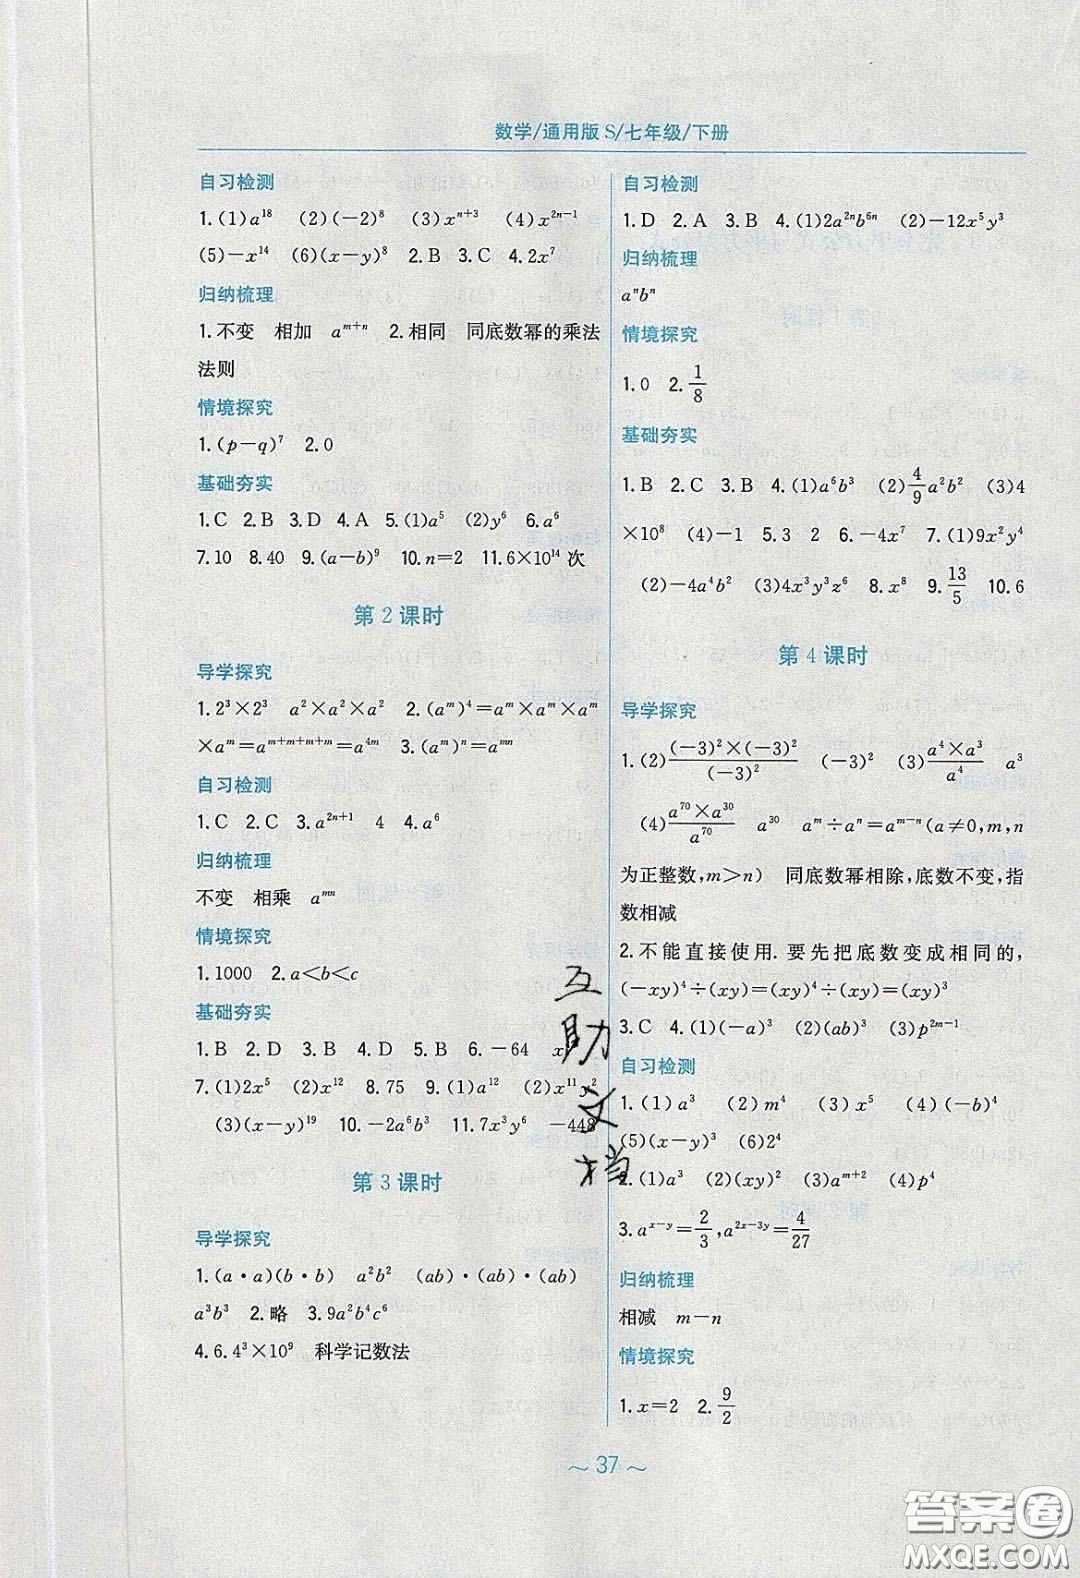 数学/通用版S/七年级/下册
自习检测
1.(1)a¹⁸ (2)(-2)⁸ (3)xⁿ⁺³ (4)x²ⁿ⁻¹
(5)-x¹⁴ (6)(x-y)⁸ 2.B 3.C 4.2x⁷
归纳梳理
1.不变 相加 aᵐ⁺ⁿ 2.相同 同底数幂的乘法
法则
情境探究
1.(p-q)⁷ 2.0
基础夯实
1.C 2.B 3.D 4.A 5.(1)a⁵ (2)y⁶ 6.a⁶
7.10 8.40 9.(a-b)⁹ 10.n=2 11.6×10¹⁴次
第2课时
导学探究
1.2³×2³ a²×a²×a² 2.(aᵐ)⁴=aᵐ×aᵐ×aᵐ
×aᵐ=aᵐ⁺ᵐ⁺ᵐ⁺ᵐ=a⁴ᵐ 3.(aᵐ)ⁿ=aᵐⁿ
自习检测
1.C 2.C 3.a²ⁿ⁺¹ 4 4.a⁶
归纳梳理
不变 相乘 aᵐⁿ
情境探究
1.1000 2.a<b<c
基础夯实
1.B 2.D 3.B 4.D 5.B 6.-64 x
7.(1)2x⁵ (2)x¹² 8.75 9.(1)a¹² (2)x¹¹y²
(3)(x-y)¹⁹ 10.-2a⁶b⁶ 11.7x³y⁶ -448
第3课时
导学探究
1.(a·a)(b·b) a²b² (ab)·(ab)·(ab)
a³b³ 2.略 3.9a²b⁴c⁶
4.6.4³×10⁹ 科学记数法
自习检测
1.D 2.A 3.B 4.(1)2a²ⁿb⁶ⁿ (2)-12x⁵y³
归纳梳理
aⁿbⁿ
情境探究
1.0 2.1/8
基础夯实
1.B 2.C 3.B 4.(1)a⁶b³ (2)4/9a²b² (3)4
×10⁸ (4)-1 5.3 2 6.-4x⁷ 7.(1)9x²y⁴
(2)-4a⁴b² (3)4x³y³z⁶ 8.x⁸ 9.13/5 10.6
第4课时
导学探究
1.(2)(-3)²×(-3)²/(-3)² (-3)² (3)a⁴×a³/a⁴ a³
(4)a⁷⁰×a³⁰/a⁷⁰ a³⁰ aᵐ÷aⁿ=aᵐ⁻ⁿ(a≠0,m,n
为正整数,m>n) 同底数幂相除,底数不变,指
数相减
2.不能直接使用.要先把底数变成相同的,
(-xy)⁴÷(-xy)=(xy)⁴÷(xy)=(xy)³
3.C 4.(1)(-a)³ (2)(ab)³ (3)p²ᵐ⁻¹
自习检测
1.(1)a³ (2)m⁴ (3)x⁵ (4)(-b)⁴
(5)(x-y)³ (6)2⁴
2.(1)a³ (2)(xy)⁴ (3)aᵐ⁺² (4)p⁴
3.aˣ⁻ʸ=2/3,a²ˣ⁻³ʸ=4/27
归纳梳理
相减 m-n
情境探究
1.x=2 2.9/2
互助文档
~37~
答案圈
MXQE.COM